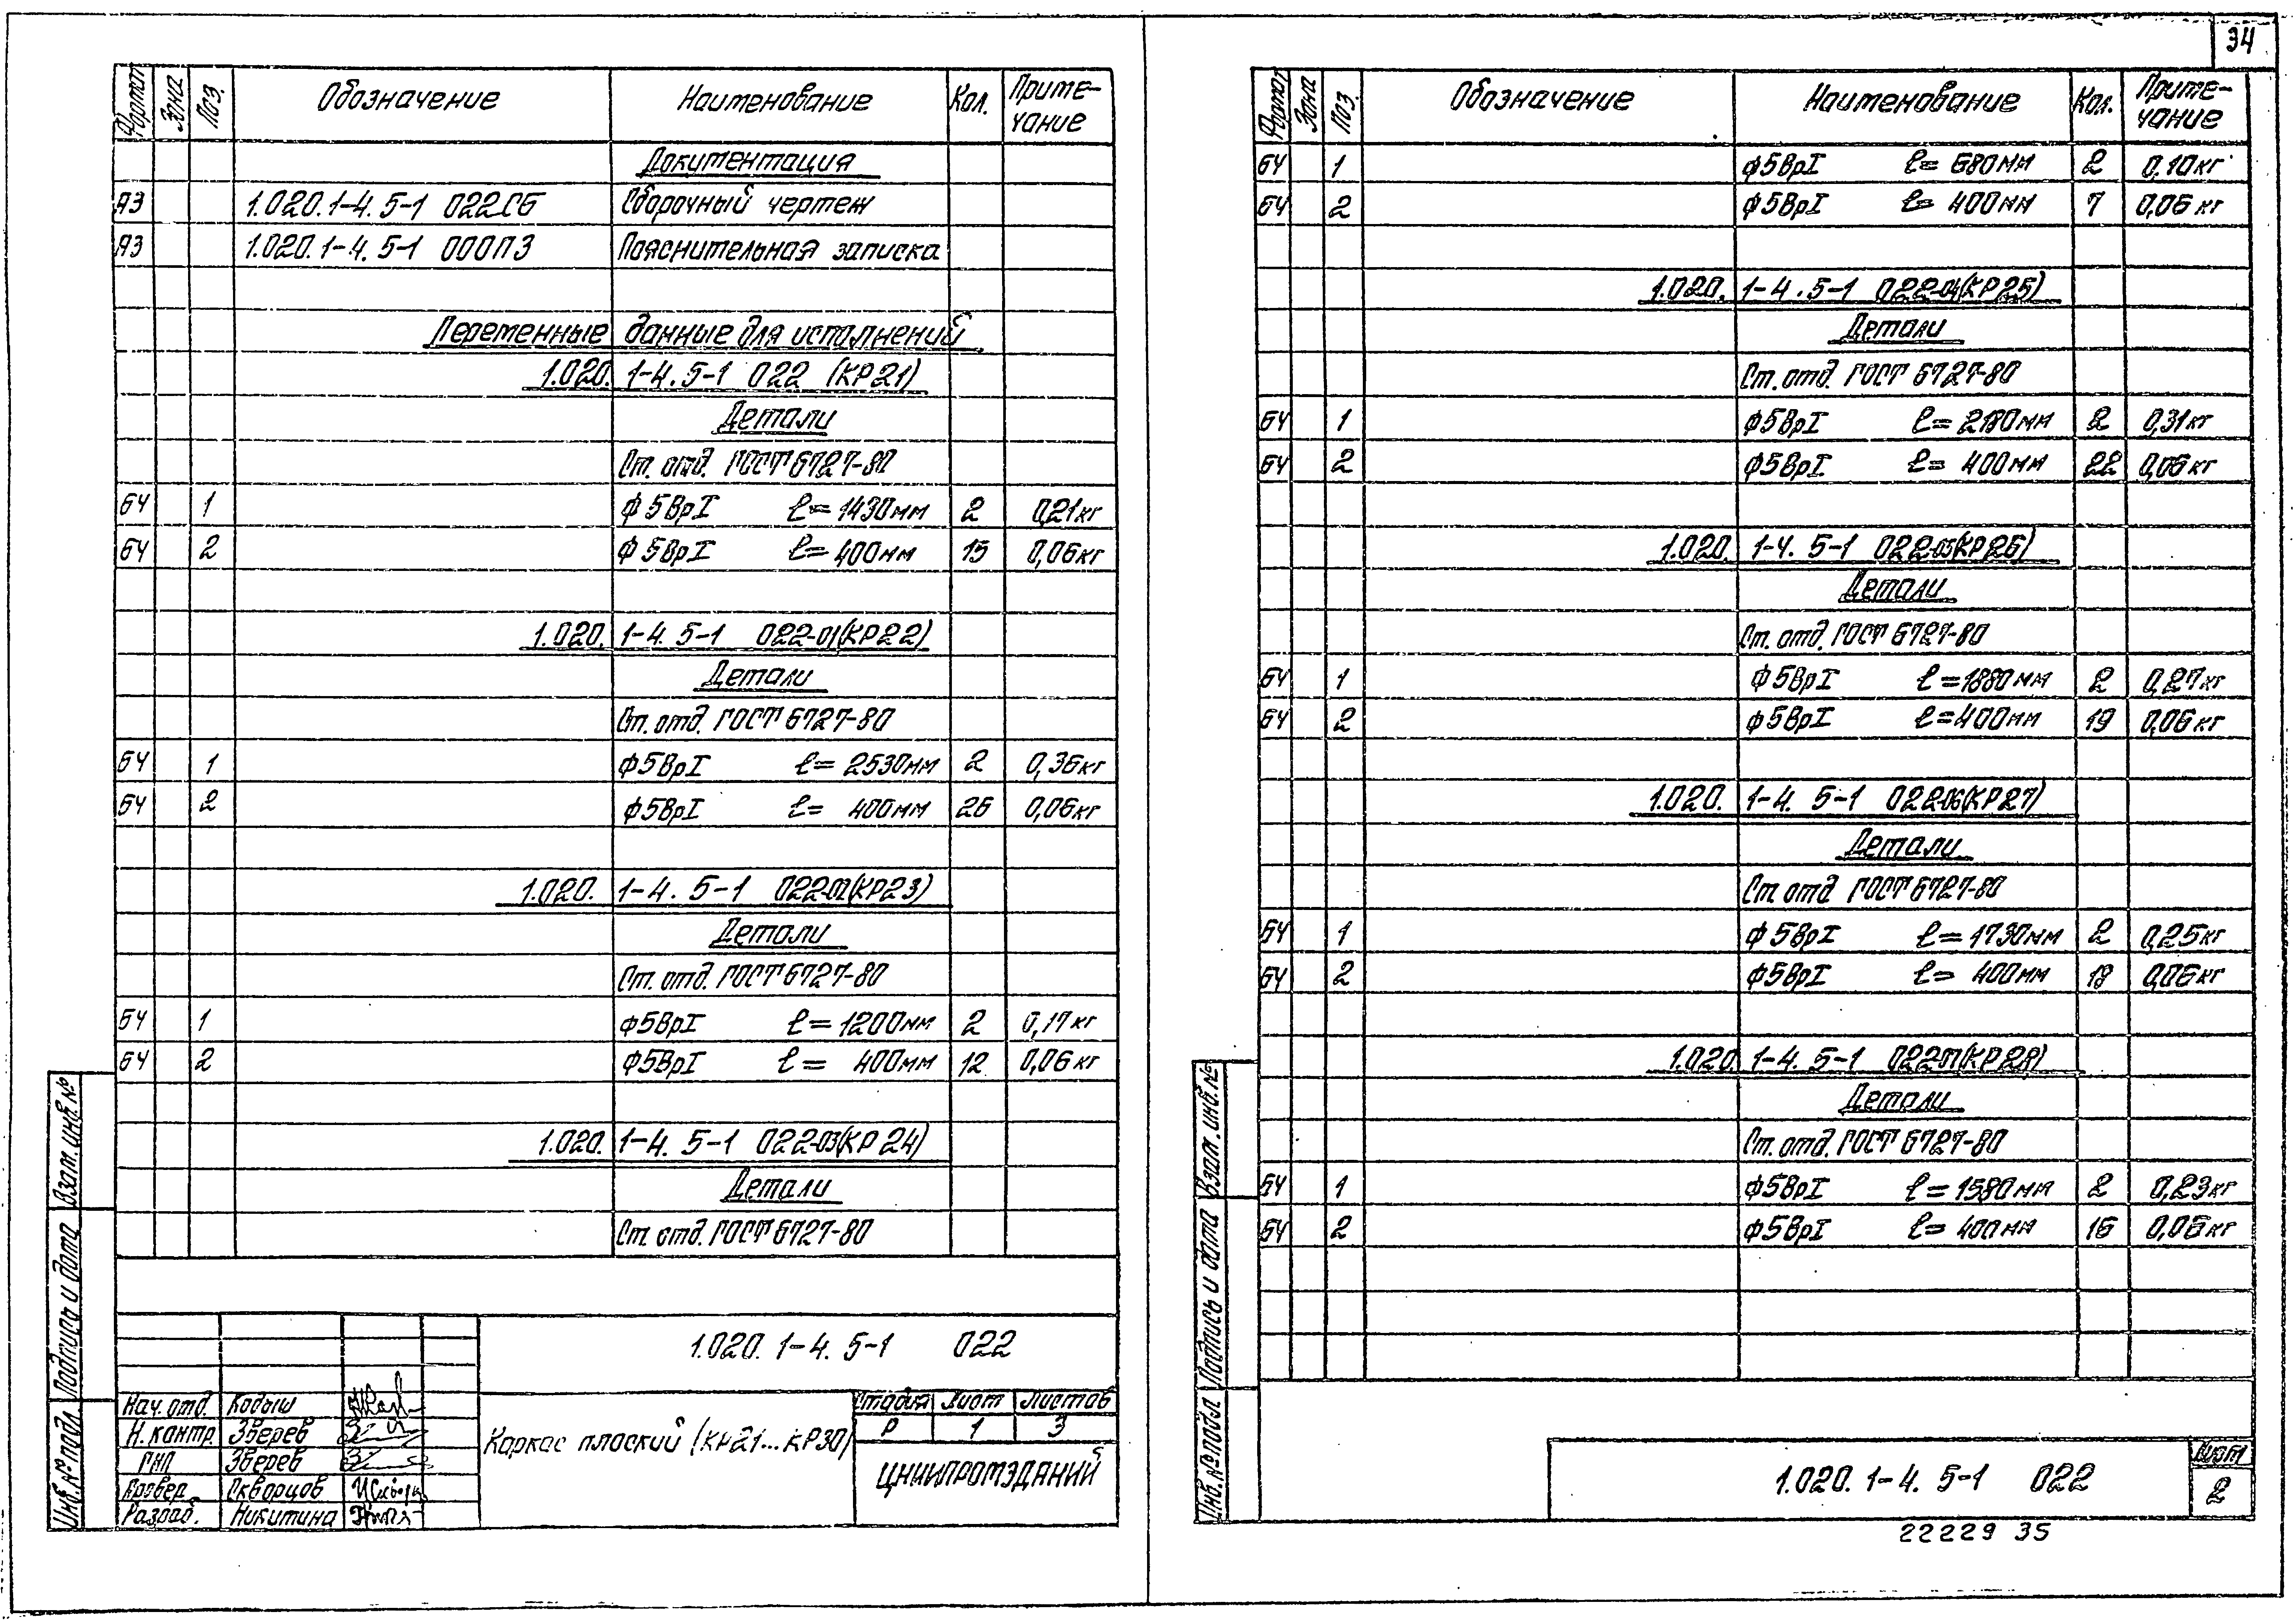 34
Формат Зона Поз. Обозначение Наименование Кол. Приме-
чание
Документация
А3 1.020.1-4.5-1 022СБ Сборочный чертеж
А3 1.020.1-4.5-1 000ПЗ Пояснительная записка
Переменные данные для исполнений
1.020.1-4.5-1 022 (КР21)
Детали
Ст. отд. ГОСТ 6727-80
БЧ 1 ф5ВрI ℓ=1430мм 2 0,21кг
БЧ 2 ф5ВрI ℓ=400мм 15 0,06кг
1.020.1-4.5-1 022-01(КР22)
Детали
Ст. отд. ГОСТ 6727-80
БЧ 1 ф5ВрI ℓ=2530мм 2 0,36кг
БЧ 2 ф5ВрI ℓ=400мм 26 0,06кг
1.020.1-4.5-1 022-02(КР23)
Детали
Ст. отд. ГОСТ 6727-80
БЧ 1 ф5ВрI ℓ=1200мм 2 0,17кг
БЧ 2 ф5ВрI ℓ=400мм 12 0,06кг
1.020.1-4.5-1 022-03(КР24)
Детали
Ст. отд. ГОСТ 6727-80
1.020.1-4.5-1 022
Нач. отд. Кодыш
Н. контр. Зверев
ГИП Зверев
Провер. Скворцов
Разраб. Никитина
Каркас плоский (КР21...КР30)
Стадия Лист Листов
Р 1 3
ЦНИИПРОМЗДАНИЙ
Инв. № подл. Подпись и дата Взам. инв. №
Формат Зона Поз. Обозначение Наименование Кол. Приме-
чание
БЧ 1 ф5ВрI ℓ=680мм 2 0,10кг
БЧ 2 ф5ВрI ℓ=400мм 7 0,06кг
1.020.1-4.5-1 022-04(КР25)
Детали
Ст. отд. ГОСТ 6727-80
БЧ 1 ф5ВрI 2 0,31кг
БЧ 2 ф5ВрI ℓ=400мм 22 0,06кг
1.020.1-4.5-1 022-05(КР26)
Детали
Ст. отд. ГОСТ 6727-80
БЧ 1 ф5ВрI ℓ=1880мм 2 0,27кг
БЧ 2 ф5ВрI ℓ=400мм 19 0,06кг
1.020.1-4.5-1 022-06(КР27)
Детали
Ст. отд. ГОСТ 6727-80
БЧ 1 ф5ВрI ℓ=1730мм 2 0,25кг
БЧ 2 ф5ВрI ℓ=400мм 0,06кг
1.020.1-4.5-1 022-07(КР28)
Детали
Ст. отд. ГОСТ 6727-80
БЧ 1 ф5ВрI ℓ=1580мм 2 0,23кг
БЧ 2 ф5ВрI ℓ=400мм 16 0,06кг
1.020.1-4.5-1 022
Лист
2
Инв. № подл. Подпись и дата Взам. инв. №
22229 35